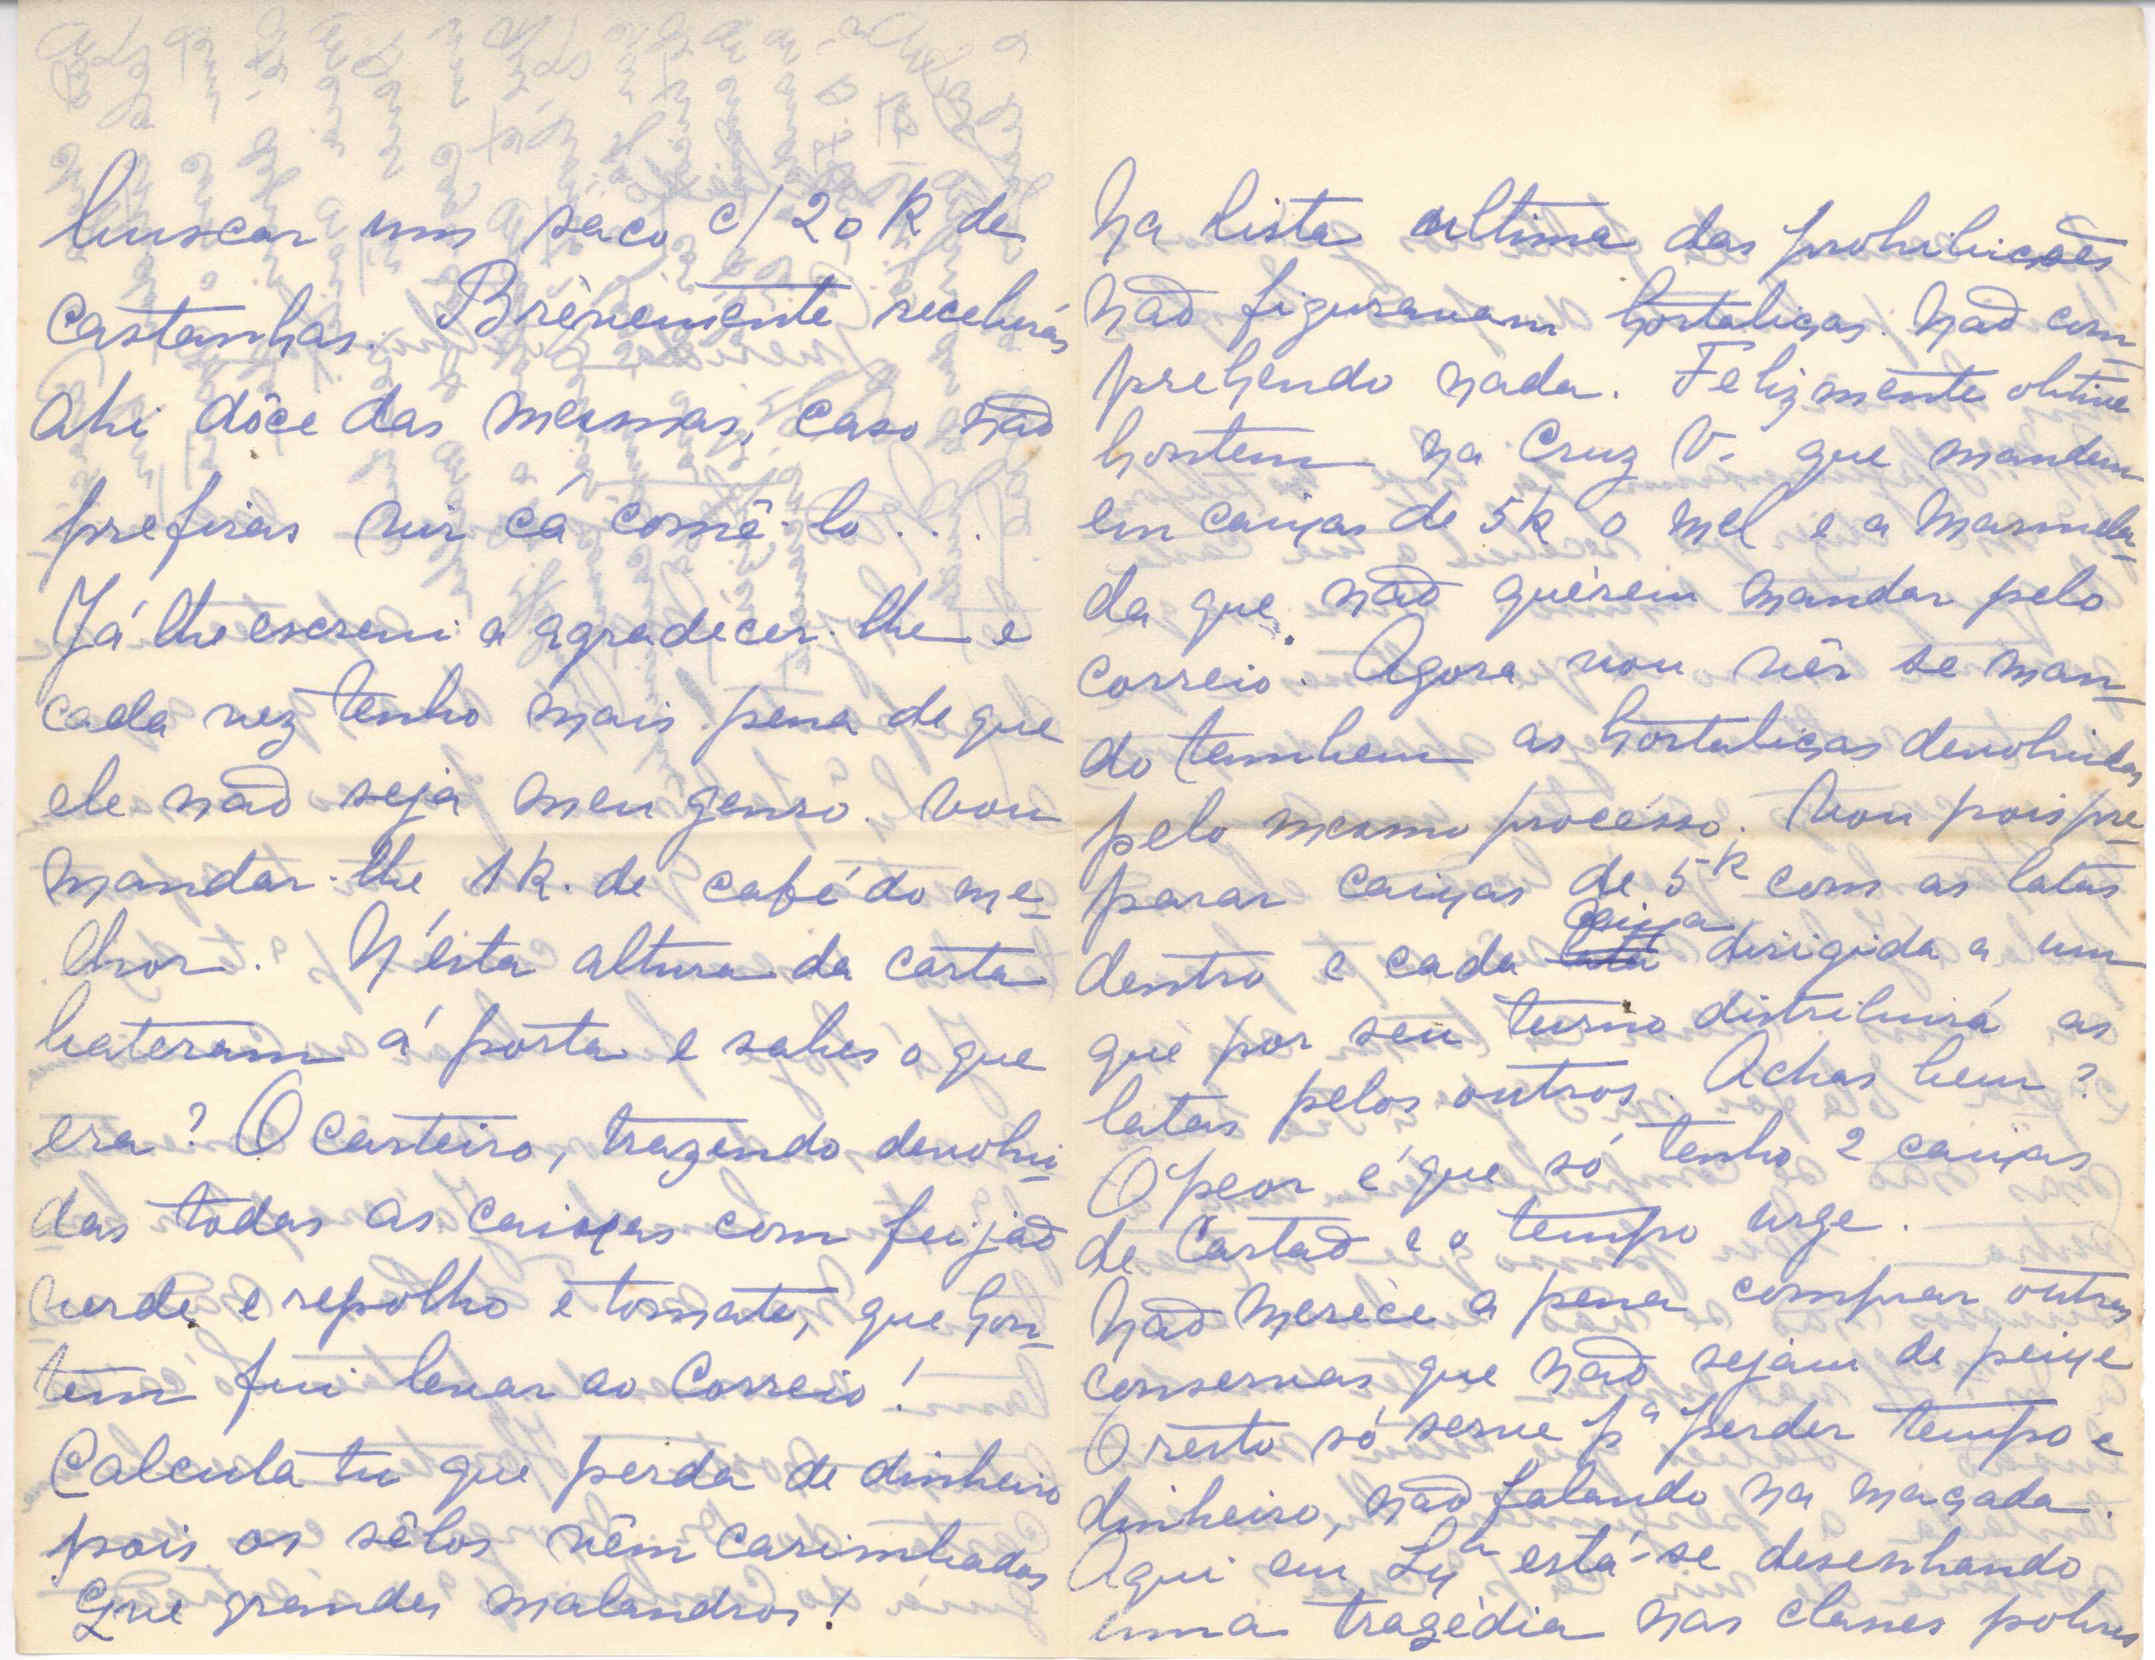 buscar um sáco c/ 20 K de
castanhas. Brèvemente receberás
ahi dôce das mesmas, caso não
prefiras vir cá comê-lo...
Já lhe escrevi a agradecer-lhe e
cada vez tenho mais pena de que
ele não seja meu genro. Vou
mandar-lhe 1 k. de café do me-
lhor. N'ésta altura da carta
bateram á porta e sabes o que
era? O carteiro, trazendo devolvi-
das todas as caixas com feijão
verde e repolho e tomate, que hon-
tem fui levar ao Correio!
Calcula tu que perda de dinheiro
pois os sêlos vêm carimbados
Que grandes malandros!
Na lista ultima das prohibições
não figuravam hortaliças. Não com-
prehendo nada. Felizmente obtive
hontem na Cruz V. que mandem
em caixas de 5k o mel e a marmela-
da que não quérem mandar pelo
correio. Agora vou vêr se man-
do tambem as hortaliças devolvidas
pelo mesmo procésso. Vou pois pre-
parar caixas de 5k com as latas
dentro e cada lata caixa dirigida a um
que por seu turno distribuirá as
latas pelos outros. Achas bem?
O peor é que só tenho 2 caixas
de Cartão e o tempo urge.
Não meréce a pena comprar outras
conservas que não sejam de peixe
O resto só serve pª perder tempo e
dinheiro, não falando na maçada.
Aqui em Lxª está-se desenhando
uma tragédia nas classes pobres